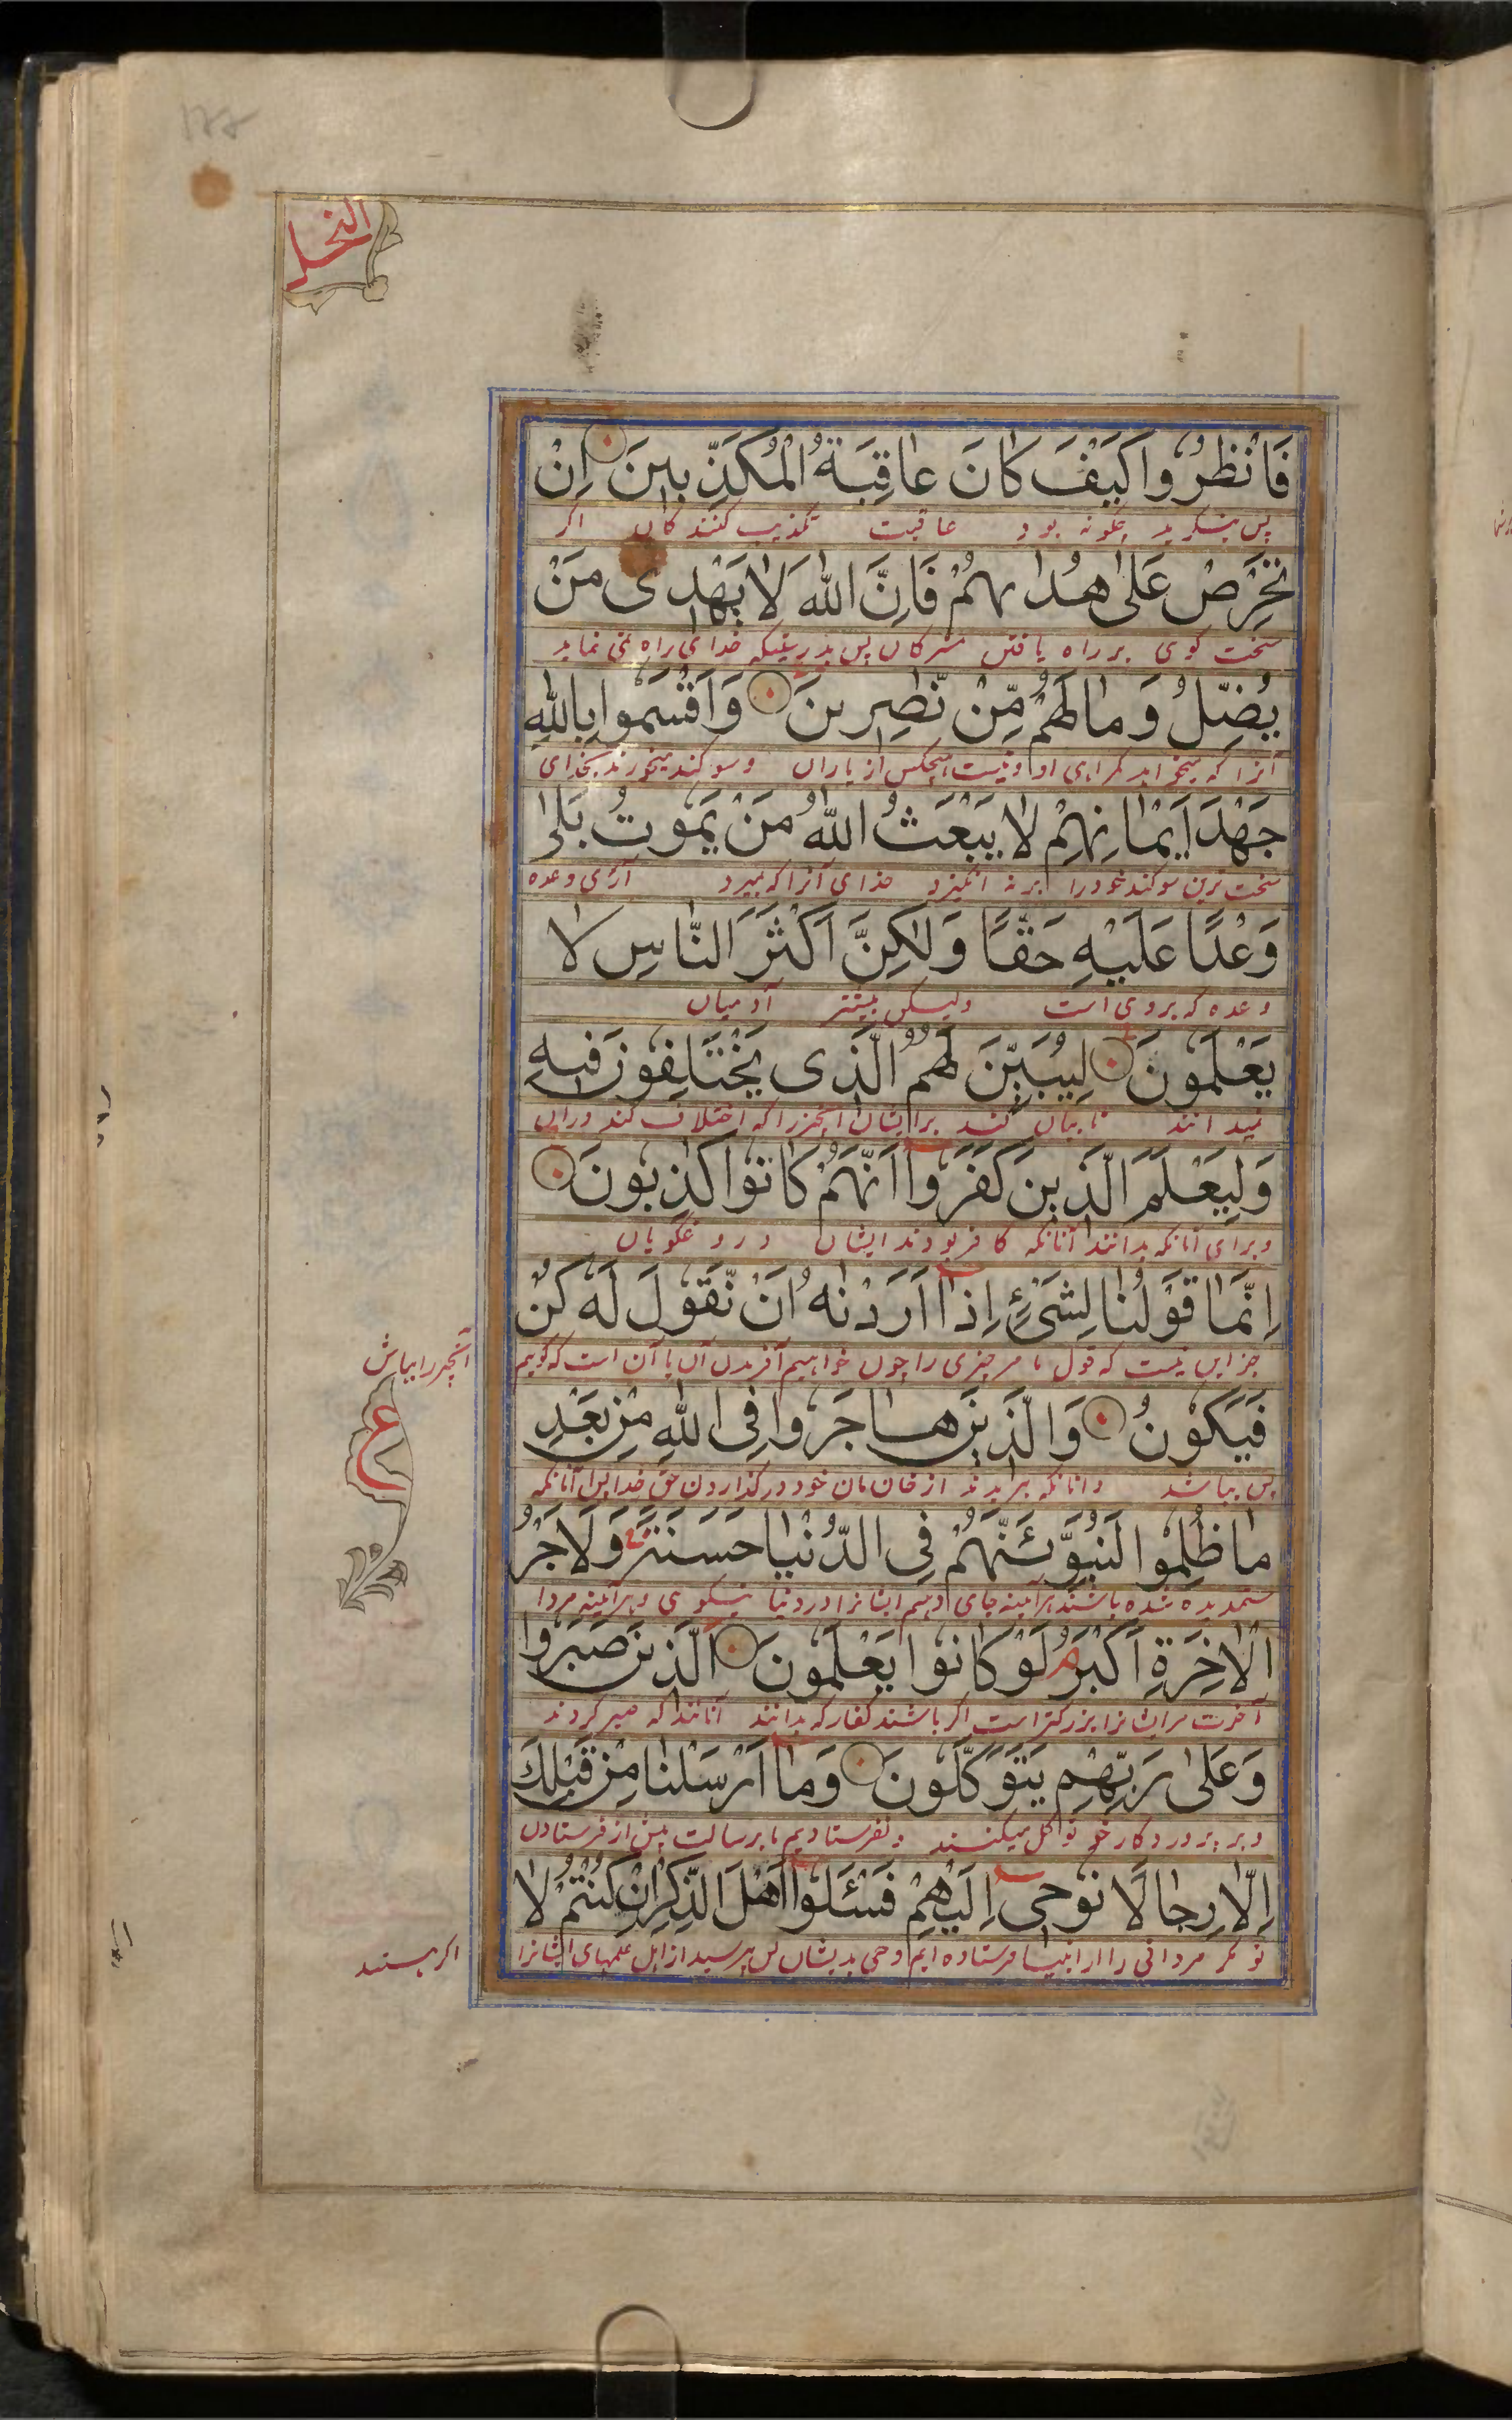 ۱۸۸
النحل
فَانْظُرُوا كَيْفَ كَانَ عَاقِبَةُ الْمُكَذِّبِينَ اِنْ
پس بنگرید چگونه بود عاقبت تکذیب کنندکان اکر
تَحْرِصْ عَلٰى هُدٰىهُمْ فَاِنَّ اللّٰهَ لَا يَهْدِى مَنْ
سخت کوی بر راه یافتن مشرکان پس بدرستیکه خدای راه نمی نماید
يُضِلُّ وَمَا لَهُمْ مِّنْ نّٰصِرِينَ وَاَقْسَمُوا بِاللّٰهِ
آنرا که میخواهد کمراهی او و نیست هیچکس از یاران وسوکند میخورند بخدای
جَهْدَ اَيْمَانِهِمْ لَا يَبْعَثُ اللّٰهُ مَنْ يَمُوتُ بَلٰى
سخت ترین سوکند خود را بر نه انکیزد خدای آنرا که بمیرد آری وعده
وَعْدًا عَلَيْهِ حَقًّا وَلٰكِنَّ اَكْثَرَ النَّاسِ لَا
وعده که بروی است ولیکن بیشتر آدمیان
يَعْلَمُونَ لِيُبَيِّنَ لَهُمُ الَّذِى يَخْتَلِفُونَ فِيهِ
نمیدانند تا بیان کند برایشان آنچیز را که اختلاف کند دران
وَلِيَعْلَمَ الَّذِينَ كَفَرُوا اَنَّهُمْ كَانُوا كٰذِبُونَ
وبرای آنانکه بدانند آنانکه کافر بودند ایشان دروغگویان
اِنَّمَا قَوْلُنَا لِشَيْئٍ اِذَا اَرَدْنٰهُ اَنْ نَّقُولَ لَهٗ كُنْ
جز این نیست که قول ما مر چیزی را چون خواهیم آفریدن آن با آن است که کوییم
آنچیر را بباش
ع
فَيَكُوْنُ وَالَّذِينَ هَاجَرُوا فِى اللّٰهِ مِنْ بَعْدِ
پس بباشد وانانکه ببریدند از خان مان خود در کذاردن حق خدا پس آنانکه
مَا ظُلِمُوا لَنُبَوِّئَنَّهُمْ فِى الدُّنْيَا حَسَنَةً وَلَاَجْرُ
ستمدیده شده باشند هرآینه جای دهیم ایشانرا در دنیا نیکوی وهرآینه مردا
الْاٰخِرَةِ اَكْبَرُ لَوْ كَانُوا يَعْلَمُونَ الَّذِينَ صَبَرُوا
آخرت مرایشانرا بزرکتر است اکر باشند کفار که بدانند آنانند که صبر کردند
وَعَلٰى رَبِّهِمْ يَتَوَكَّلُونَ وَمَا اَرْسَلْنَا مِنْ قَبْلِكَ
وبر پروردکار خو توکل میکنند ونفرستادیم ما برسالت پیش از فرستادن
اِلَّا رِجَالًا نُوحِى اِلَيْهِمْ فَسْئَلُوا اَهْلَ الذِّكْرِ اِنْ كُنْتُمْ لَا
تو مکر مردانی را از انبیا فرستاده ایم وحی بدیشان پس بپرسید از اهل علمهای ایشانرا
اکر هستید